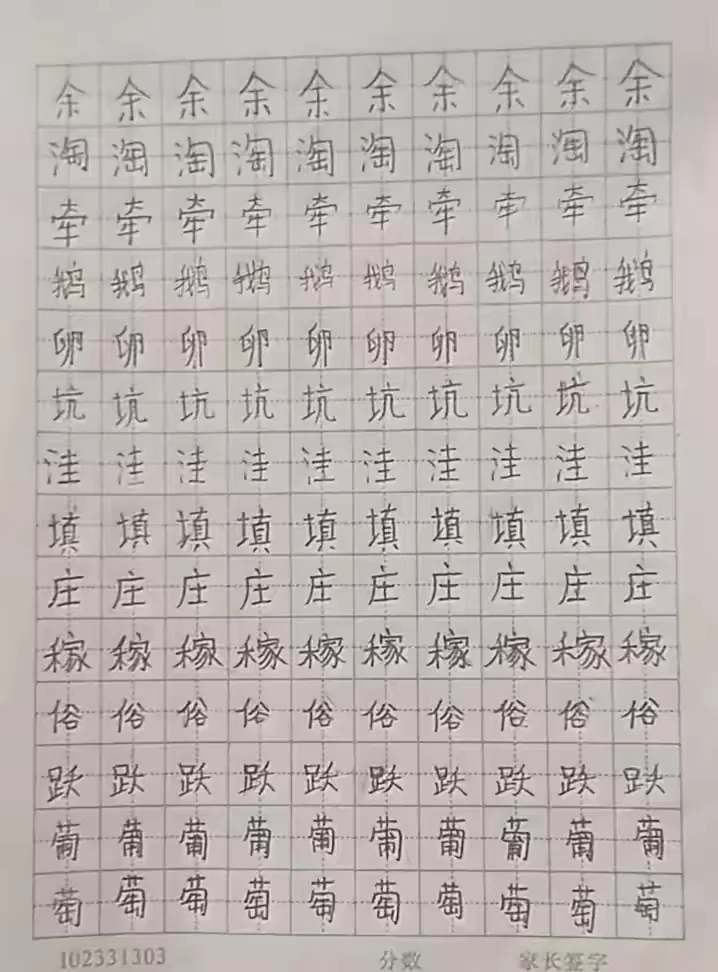 余余余余余余余余余余
淘淘淘淘淘淘淘淘淘淘
牵牵牵牵牵牵牵牵牵牵
鹅鹅鹅鹅鹅鹅鹅鹅鹅鹅
卵卵卵卵卵卵卵卵卵卵
坑坑坑坑坑坑坑坑坑坑
洼洼洼洼洼洼洼洼洼洼
填填填填填填填填填填
庄庄庄庄庄庄庄庄庄庄
稼稼稼稼稼稼稼稼稼稼
俗俗俗俗俗俗俗俗俗俗
跃跃跃跃跃跃跃跃跃跃
葡葡葡葡葡葡葡葡葡葡
萄萄萄萄萄萄萄萄萄萄
I02331303 分数 家长签字